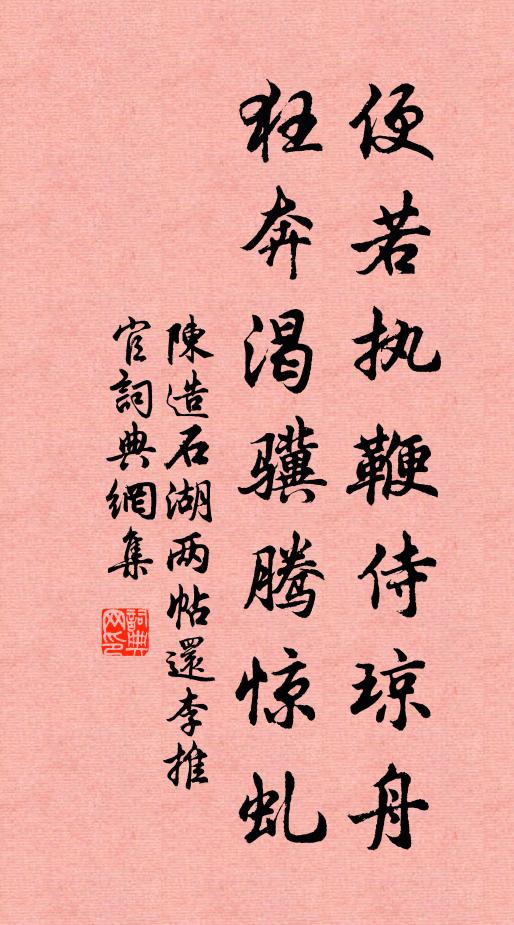 便若执鞭侍琼舟
狂奔渴骥腾惊虬
陳造石湖两帖還李推
官詞典網集
詞典
网印